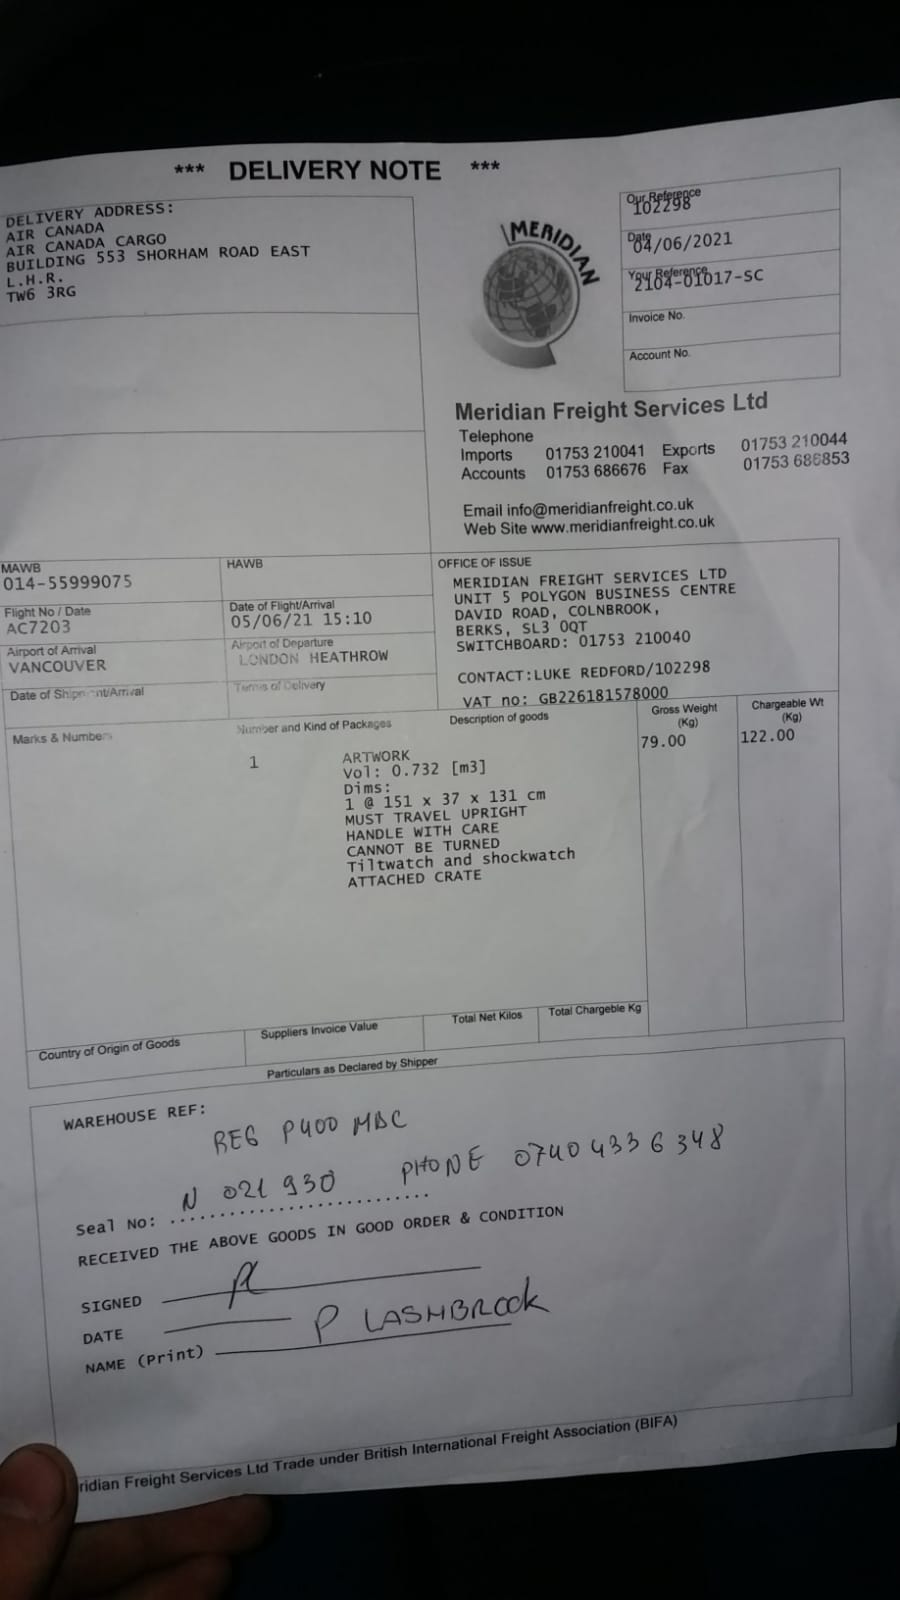 *** DELIVERY NOTE ***
DELIVERY ADDRESS:
AIR CANADA
AIR CANADA CARGO
BUILDING 553 SHORHAM ROAD EAST
L.H.R.
TW6 3RG
MERIDIAN
Our Reference
102298
Date
04/06/2021
Your Reference
2104-01017-SC
Invoice No.
Account No.
Meridian Freight Services Ltd
Telephone
Imports 01753 210041 Exports 01753 210044
Accounts 01753 686676 Fax 01753 686853
Email info@meridianfreight.co.uk
Web Site www.meridianfreight.co.uk
MAWB
014-55999075
HAWB
Flight No / Date
AC7203
Date of Flight/Arrival
05/06/21 15:10
Airport of Arrival
VANCOUVER
Airport of Departure
LONDON HEATHROW
Date of Shipment/Arrival
Terms of Delivery
OFFICE OF ISSUE
MERIDIAN FREIGHT SERVICES LTD
UNIT 5 POLYGON BUSINESS CENTRE
DAVID ROAD, COLNBROOK,
BERKS, SL3 0QT
SWITCHBOARD: 01753 210040
CONTACT:LUKE REDFORD/102298
VAT no: GB226181578000
Marks & Numbers
Number and Kind of Packages
Description of goods
Gross Weight
(Kg)
Chargeable Wt
(Kg)
1
79.00
122.00
ARTWORK
Vol: 0.732 [m3]
Dims:
1 @ 151 x 37 x 131 cm
MUST TRAVEL UPRIGHT
HANDLE WITH CARE
CANNOT BE TURNED
Tiltwatch and shockwatch
ATTACHED CRATE
Country of Origin of Goods
Suppliers Invoice Value
Total Net Kilos
Total Chargeble Kg
Particulars as Declared by Shipper
WAREHOUSE REF:
REG P400 MBC
Seal No: N 021 930 PHONE 0740 4336 348
RECEIVED THE ABOVE GOODS IN GOOD ORDER & CONDITION
SIGNED
DATE
NAME (Print) P LASHBROOK
ridian Freight Services Ltd Trade under British International Freight Association (BIFA)